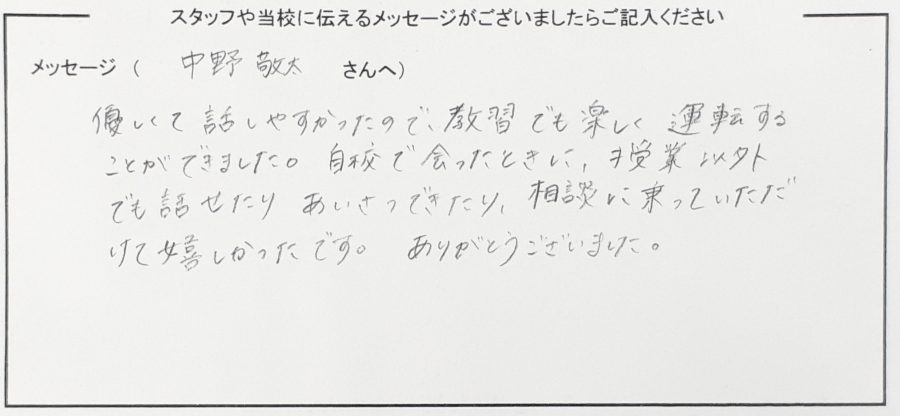 スタッフや当校に伝えるメッセージがございましたらご記入ください
メッセージ ( 中野 敬太 さんへ)
優しくて話しやすかったので、教習でも楽しく運転する
ことができました。自校で会ったときに、授業以外
でも話せたり あいさつできたり、相談に乗っていただ
けて嬉しかったです。 ありがとうございました。